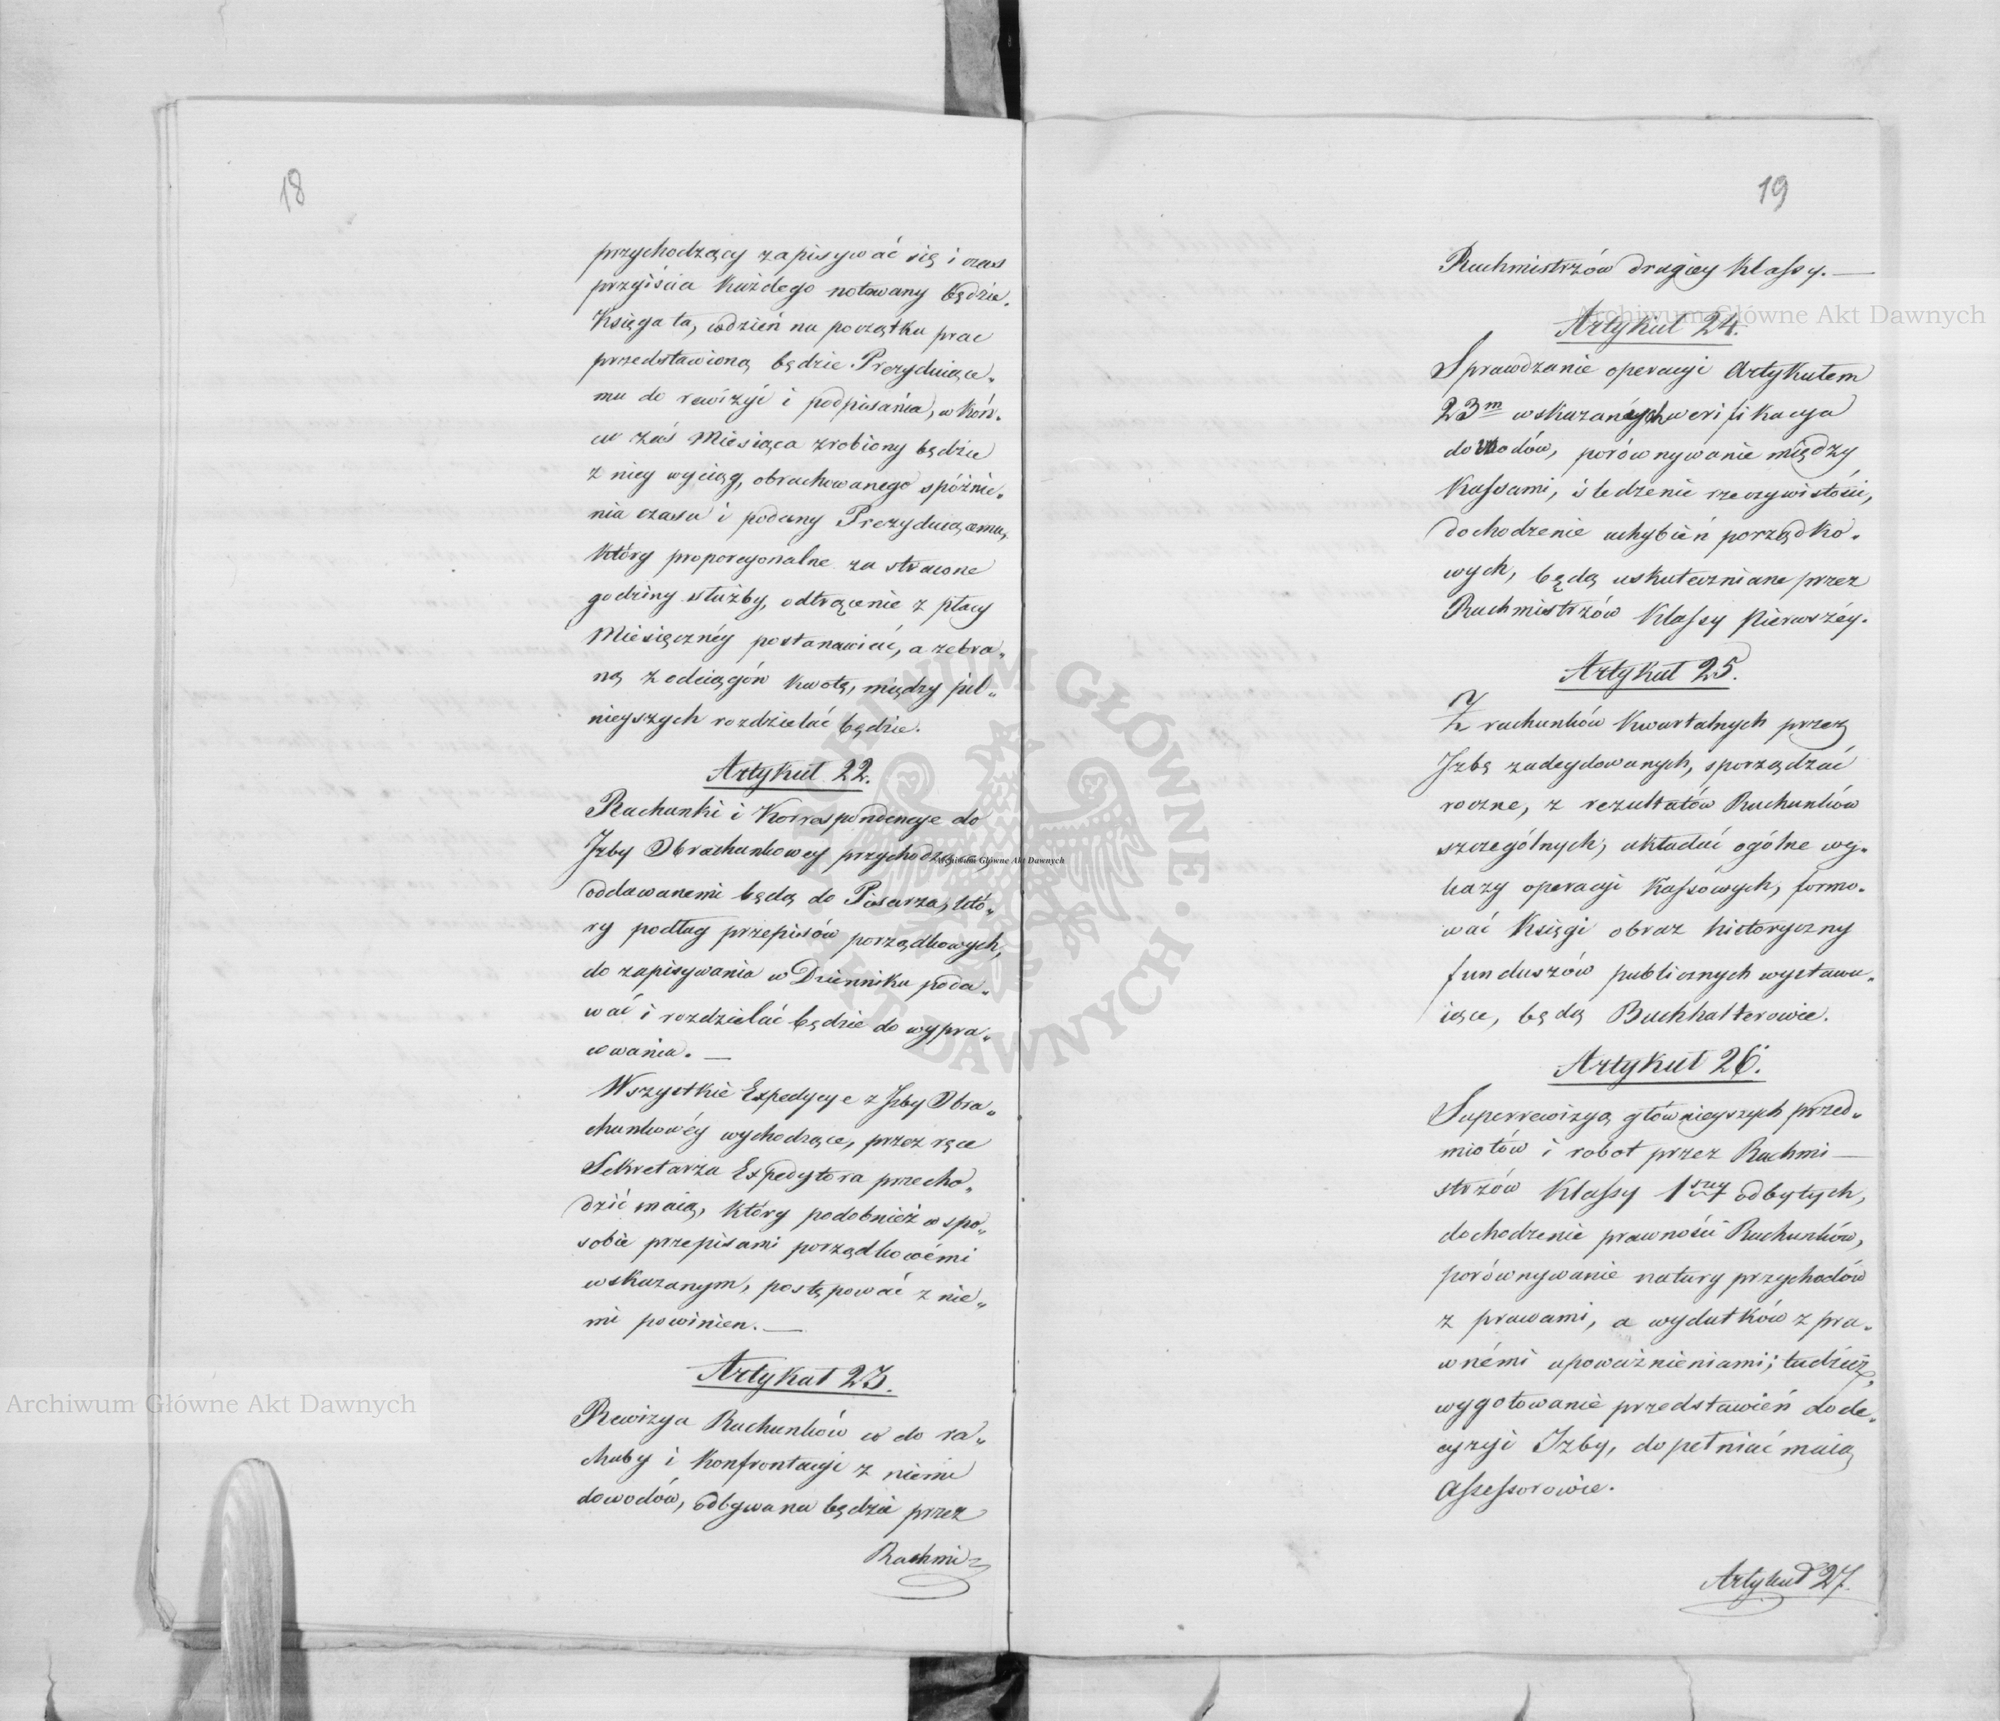 18
przychodzący zapisywać się i czas
przyiścia każdego notowany będzie.
Księga ta, codzień na początku prac
przedstawioną będzie Prezyduiące„
mu do rewizyi i podpisania, w koń„
cu zaś Miesiąca zrobiony będzie
z niey wyciąg, obrachowanego spóźnie„
nia czasu i podany Prezyduiącemu,
który proporcyonalne za stracone
godziny służby, odtrącenie z płacy
Miesięcznéy postanawiać, a zebra„
ną z odciągów kwotę, między pil„
nieyszych rozdzielać będzie.
Artykuł 22.
Rachunki i Korrespondencye do
Izby Obrachunkowey przychodzące,
oddawanemi będą do Pisarza, któ„
ry podług przepisów porządkowych,
do zapisywania w Dzienniku poda„
wać i rozdzielać będzie do wypra„
cowania. —
Wszystkie Expedycye z Izby Obra„
chunkowéy wychodzące, przez ręce
Sekretarza Expedytora przecho„
dzić maią, który podobnież w spo„
sobie przepisami porządkowémi
wskazanym, postępować z nie„
mi powinien. —
Artykuł 23.
Rewizya Rachunków co do ra„
chuby i konfrontacyi z niemi
dowodów, odbywana będzie przez
Rachmi„
19
Rachmistrzów drugiey klassy. —
Artykuł 24.
Sprawdzanie operacyi Artykułem
23m wskazanych weryfikacya
dowodów, porównywanie między
Kassami, śledzenie rzeczywistości,
dochodzenie uchybień porządko„
wych, będą uskuteczniane przez
Rachmistrzów klassy pierwszéy.
Artykuł 25.
Z rachunków kwartalnych przez
Izbę zadecydowanych, sporządzać
roczne, z rezultatów Rachunków
szczególnych, układać ogólne wy„
kazy operacyi Kassowych, formo„
wać Księgi obraz historyczny
funduszów publicznych wystawu„
iące, będą Buchhalterowie.
Artykuł 26.
Superrewizyą główнieyszych przed„
miotów i robot przez Rachmi—
strzów klassy 1szey odbytych,
dochodzenie prawności Rachunków,
porównywanie natury przychodów
z prawami, a wydatków z pra„
wnémi upoważnieniami; tudzież,
wygotowanie przedstawień do de„
cyzyi Izby, dopełniać maią
Assessorowie.
Artykuł 27.
Archiwum Główne Akt Dawnych
Archiwum Główne Akt Dawnych
Archiwum Główne Akt Dawnych
ARCHIWUM GŁÓWNE AKT DAWNYCH